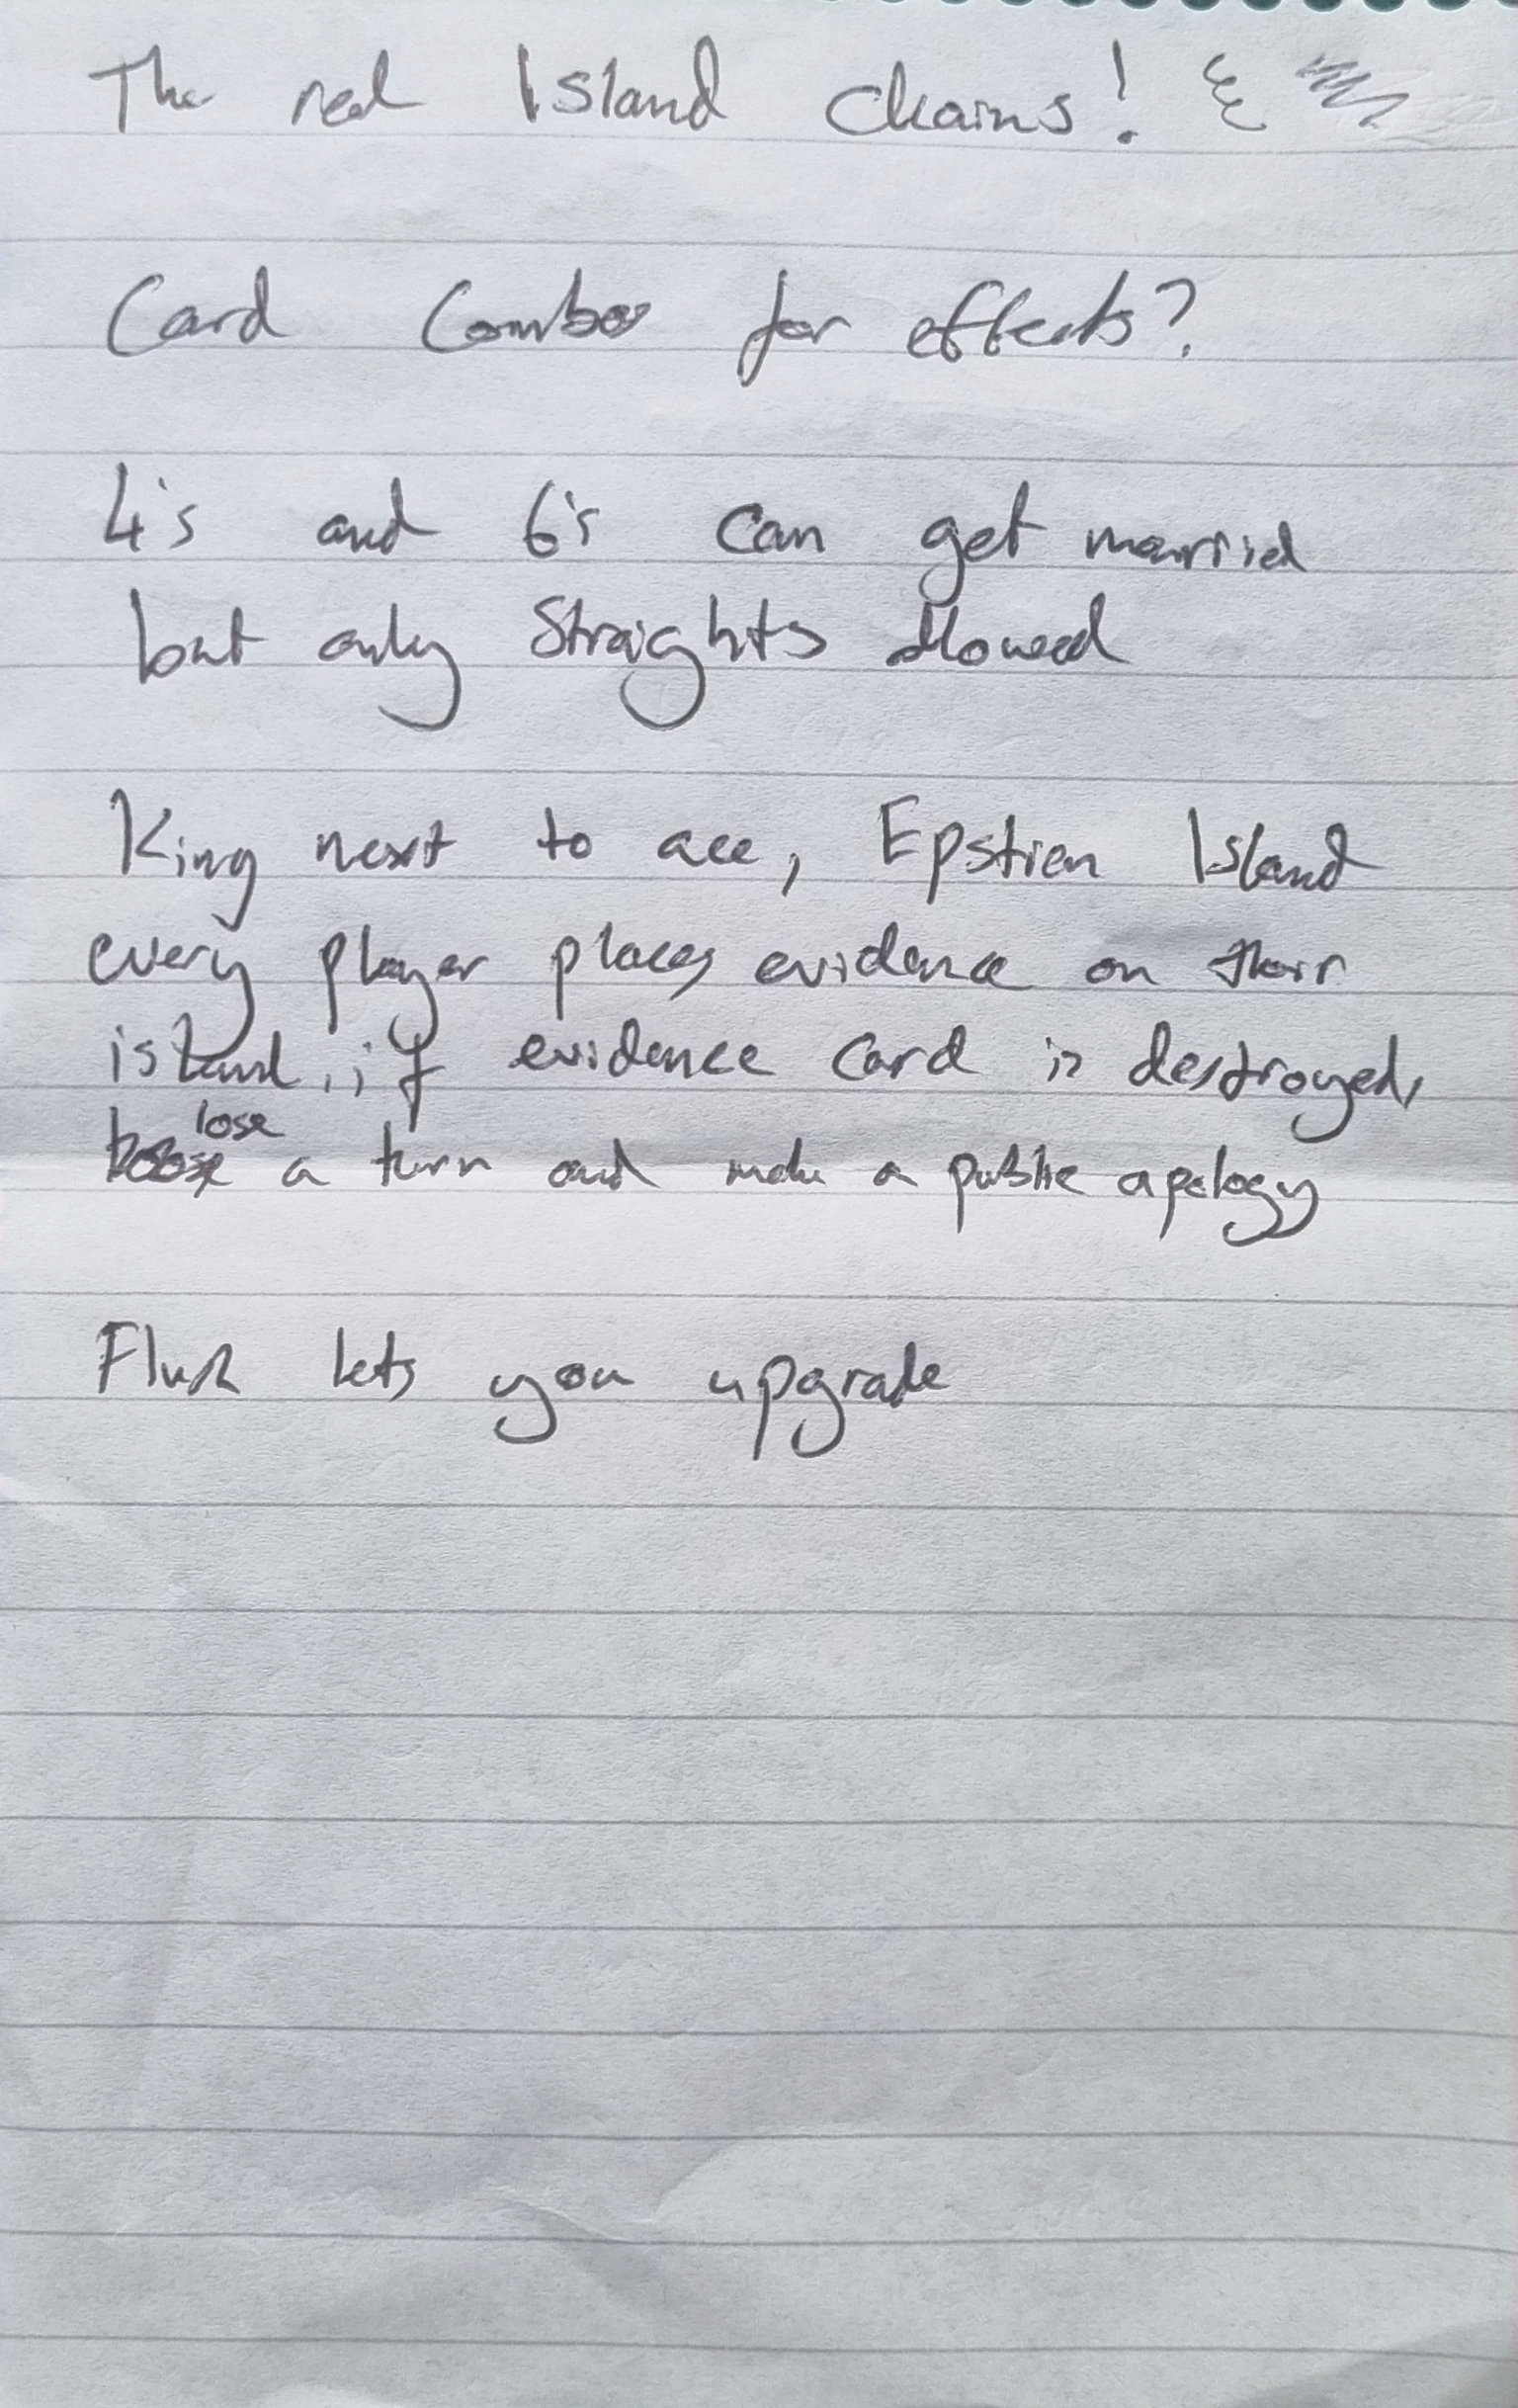 The red Island Chains!
Card Combos for effects?
4's and 6's can get married
but only Straights allowed
King next to ace, Epstien Island
every player places evidence on their
island, if evidence card is destroyed,
lose
a turn and make a public apology
Flush lets you upgrade